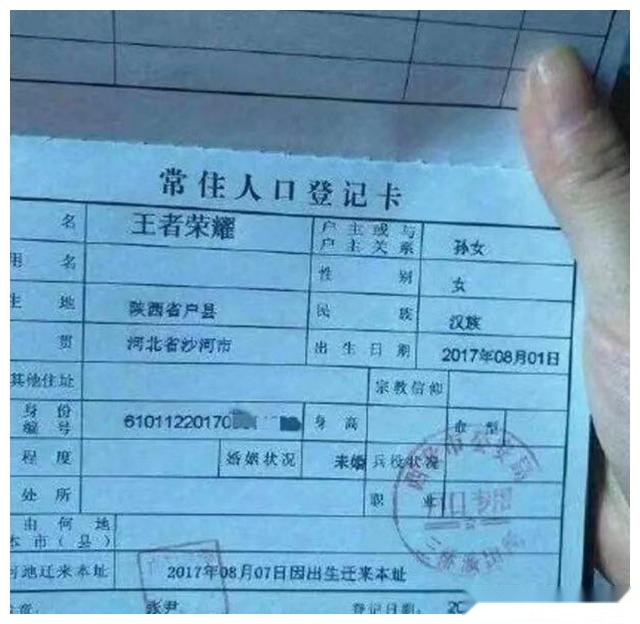 常住人口登记卡
名 王者荣耀 户主或与户主关系 孙女
用名 性别 女
生地 陕西省户县 民族 汉族
贯 河北省沙河市 出生日期 2017年08月01日
其他住址 宗教信仰
身份编号 61011220170 身高 血型
程度 婚姻状况 未婚 兵役状况
处所 职业
由何地
本市(县)
何地迁来本址 2017年08月07日因出生迁来本址
张尹 登记日期: 20